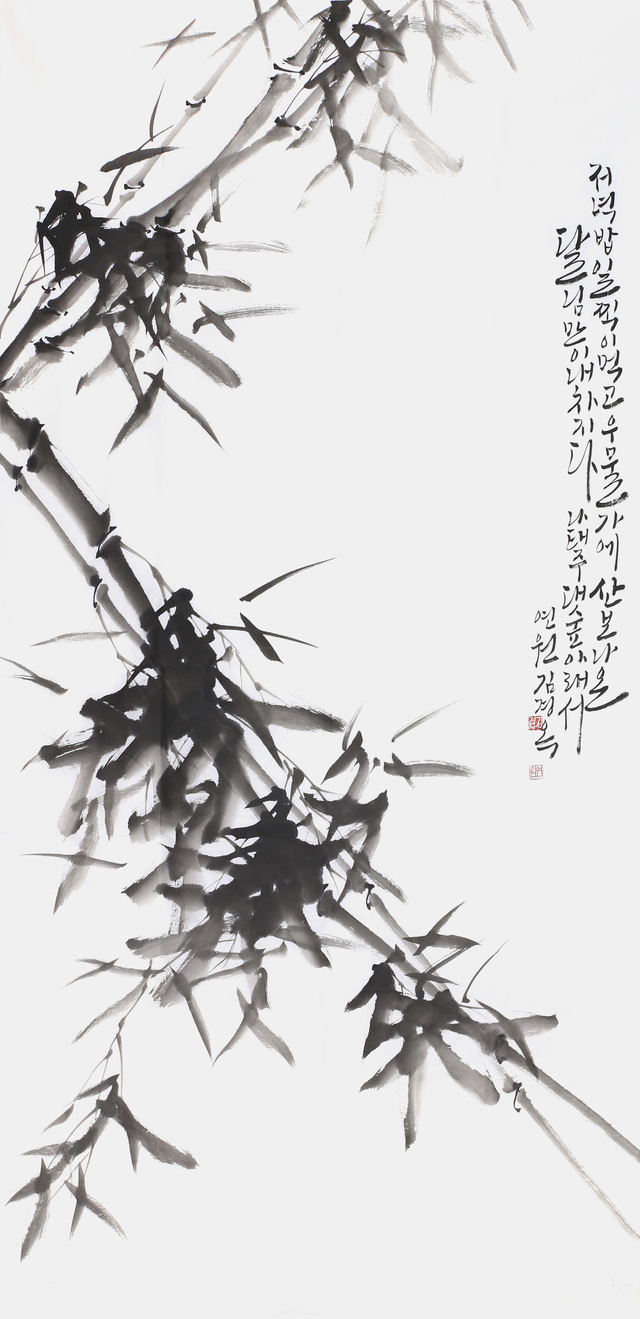 저녁밥 일찍이 먹고 우물가에 산보 나온
달님만이 내 차지다 나태주 댓숲아래서
연원 김경옥